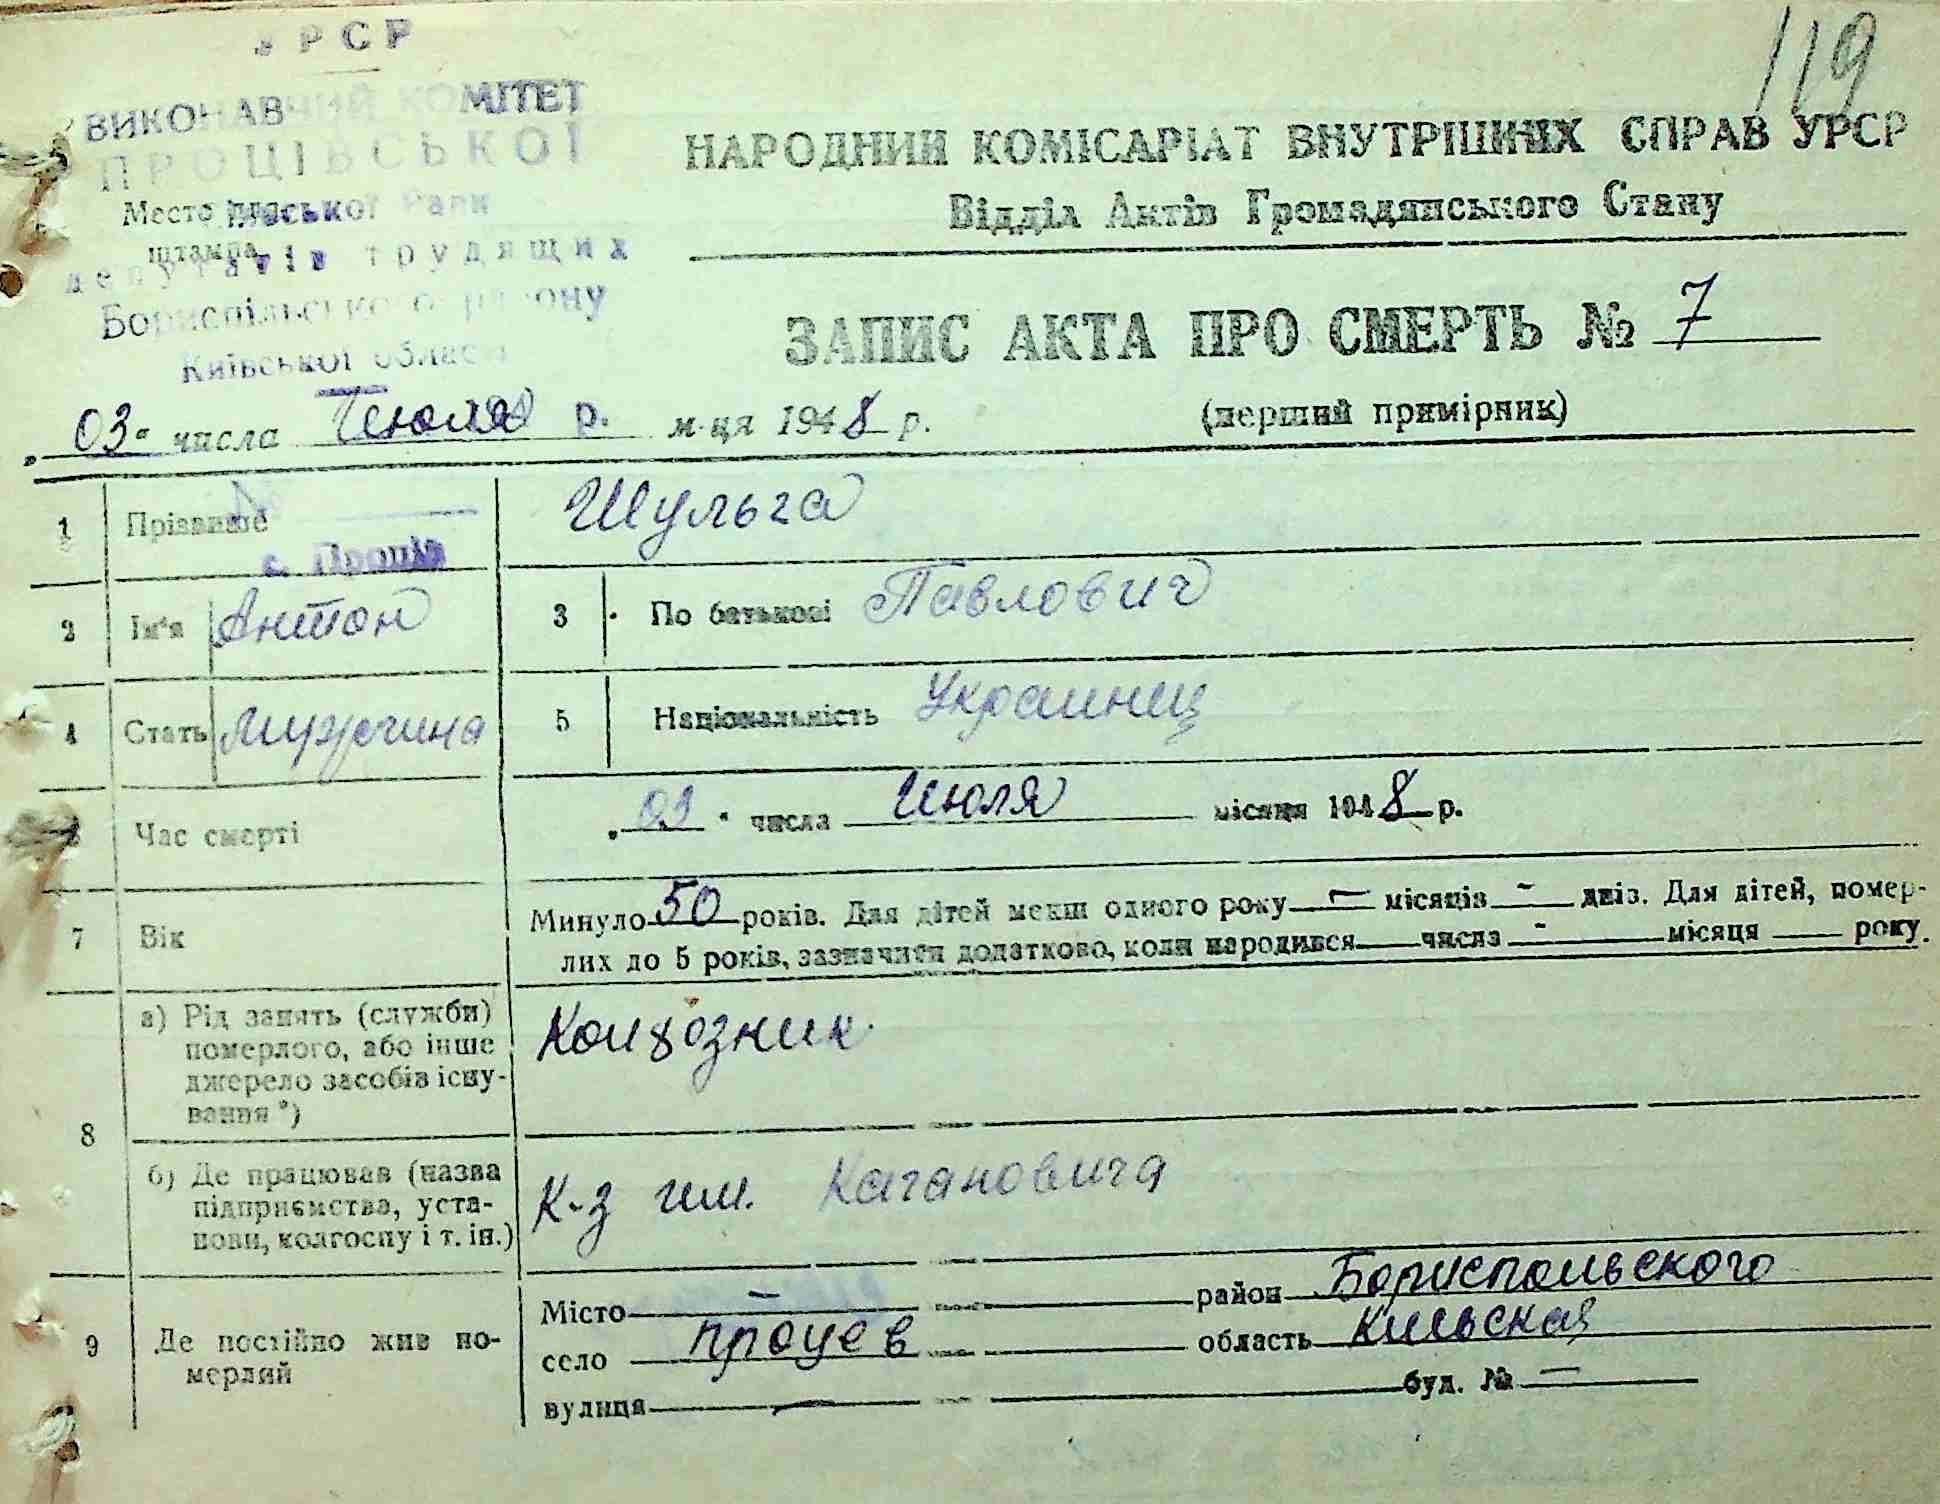 УРСР
119
ВИКОНАВЧИЙ КОМІТЕТ
ПРОЦІВСЬКОЇ
НАРОДНИЙ КОМІСАРІАТ ВНУТРІШНІХ СПРАВ УРСР
Место для
сільської Ради
Відділ Актів Громадянського Стану
штампа
депутатів трудящих
Бориспільського району
ЗАПИС АКТА ПРО СМЕРТЬ № 7
Київської області
„ 03 " числа Июля р. м-ця 1948 р.
(перший примірник)
1 Прізвище Шульга
с. Проців
2 Ім'я Антон 3 По батькові Павлович
4 Стать мужчина 5 Національність Украинец
Час смерті „ 03 " числа Июля місяця 1948 р.
7 Вік Минуло 50 років. Для дітей менш одного року — місяців - днів. Для дітей, помер-
лих до 5 років, зазначити додатково, коли народився числа - місяця року.
8 а) Рід занять (служби) померлого, або інше джерело засобів існування *) Колхозник
б) Де працював (назва підприємства, установи, колгоспу і т. ін.) К-з им. Кагановича
9 Де постійно жив померлий
Місто — район Бориспольского
село Процев область Киевская
вулиця — буд. № —